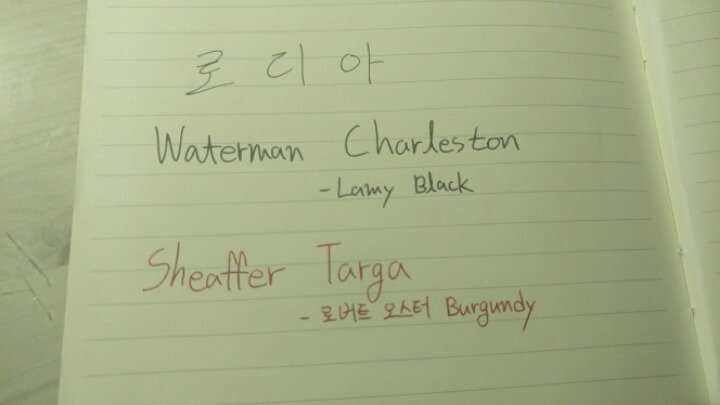 로디아
Waterman Charleston
- Lamy Black
Sheaffer Targa
- 로버트 오스터 Burgundy